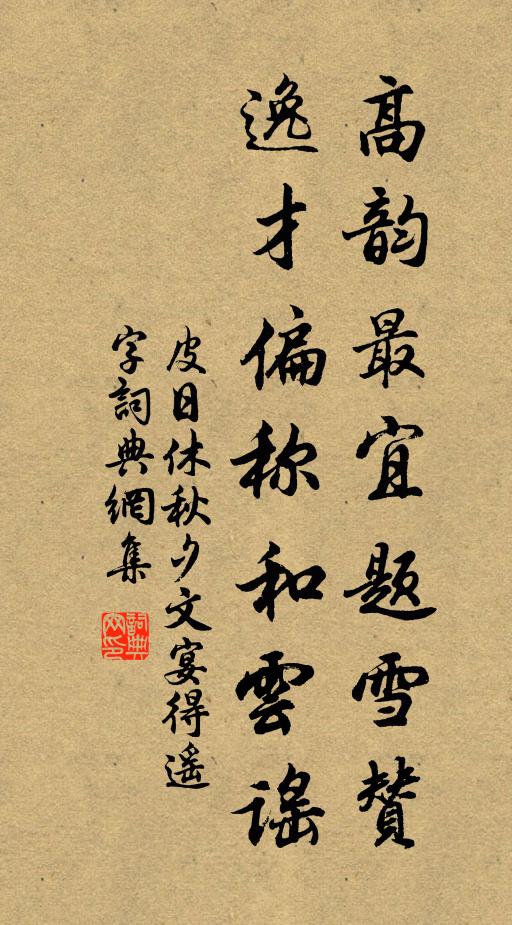 高韵最宜题雪赞
逸才偏称和雲谣
皮日休秋夕文宴得遥
字詞典網集
詞典网印